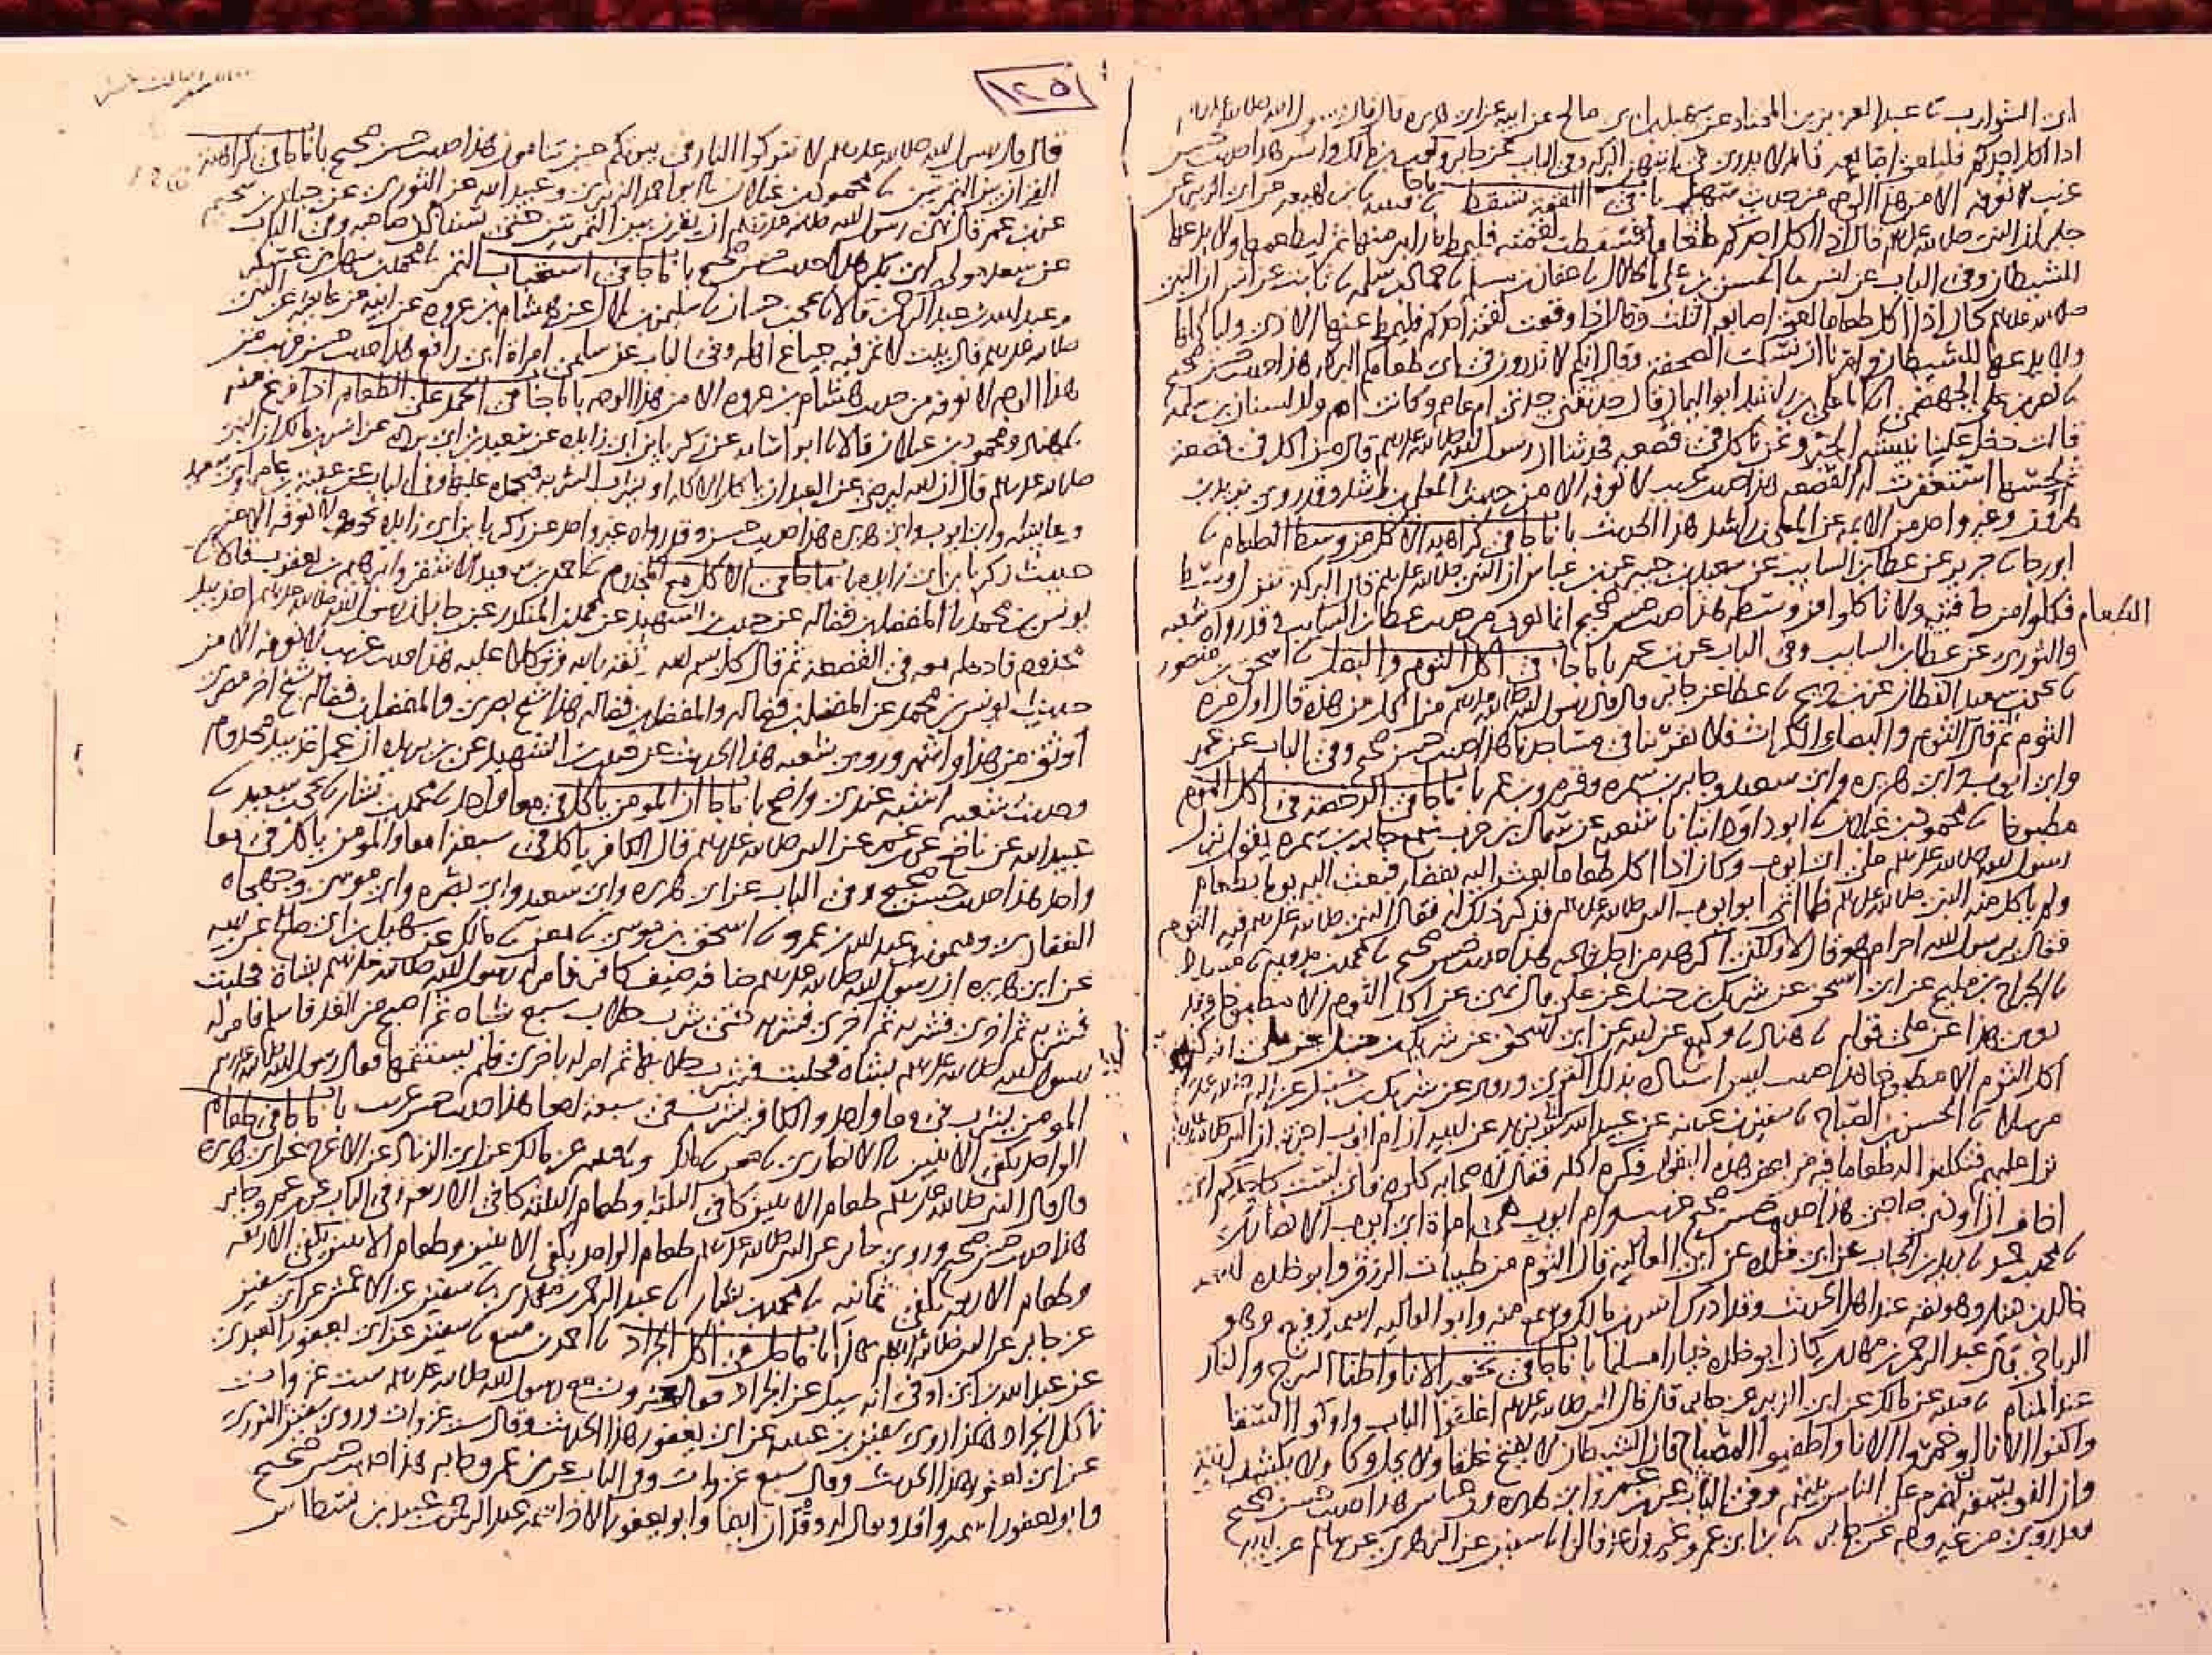 ابن الشوارب نا عبد العزيز بن المختار عن سهيل بن ابي صالح عن ابيه عن ابي هريره قال قال رسول الله صلى الله عليه وسلم
اذا اكل احدكم فليلعق اصابعه فانه لا يدري في ايتهن البركه وفي الباب عن جابر وكعب بن مالك وانس هذا حديث حسن
غريب لا نعرفه الا من هذا الوجه من حديث سهيل باب ما جا في اللقمه تسقط نا قتيبه نا بن لهيعه عن ابي الزبير عن
جابر ان النبي صلى الله عليه وسلم قال اذا اكل احدكم طعاما فسقطت لقمته فليمط ما رابه منها ثم ليطعمها ولا يدعها
للشيطان وفي الباب عن انس نا الحسن بن علي الخلال نا عفان بن مسلم نا حماد بن سلمه نا ثابت عن انس ان النبي
صلى الله عليه وسلم كان اذا اكل طعاما لعق اصابعه الثلث وقال اذا وقعت لقمة احدكم فليمط عنها الاذى ولياكلها
ولا يدعها للشيطان وامرنا ان نسلت الصحفة وقال انكم لا تدرون في اي طعامكم البركه هذا حديث حسن صحيح
نا نصر بن علي الجهضمي انا المعلى بن راشد ابو اليمان قال حدثتني جدتي ام عاصم وكانت ام ولد لسنان بن سلمه
قالت دخل علينا نبيشه الخير ونحن ناكل في قصعه فحدثنا ان رسول الله صلى الله عليه وسلم قال من اكل في قصعة
ثم لحسها استغفرت له القصعه هذا حديث غريب لا نعرفه الا من حديث المعلى بن راشد وقد روى يزيد بن
هرون وغير واحد من الائمه عن المعلى بن راشد هذا الحديث باب ما جا في كراهية الاكل من وسط الطعام نا
ابو رجا نا جرير عن عطا بن السايب عن سعيد بن جبير عن بن عباس ان النبي صلى الله عليه وسلم قال البركه تنزل وسط
الطعام فكلوا من حافتيه ولا تاكلوا من وسطه هذا حديث حسن صحيح انما يعرف من حديث عطا بن السايب وقد رواه شعبه
والثوري عن عطا بن السايب وفي الباب عن بن عمر باب ما جا في اكل الثوم والبصل نا اسحق بن منصور
نا يحيى بن سعيد القطان عن بن جريج نا عطا عن جابر قال قال رسول الله صلى الله عليه وسلم من اكل من هذه قال اول مره
الثوم ثم قال الثوم والبصل والكراث فلا يقربنا في مساجدنا هذا حديث حسن صحيح وفي الباب عن عمر
وابي ايوب وابي هريره وابي سعيد وجابر بن سمره وقره وبن عمر باب ما جا في الرخصة في اكل الثوم
مطبوخا نا محمود بن غيلان نا ابو داود انبانا شعبه عن سماك بن حرب سمع جابر بن سمره يقول نزل
رسول الله صلى الله عليه وسلم على ابي ايوب وكان اذا اكل طعاما بعث اليه بفضله فبعث اليه يوما بطعام
ولم ياكل منه النبي صلى الله عليه وسلم فلما اتى ابو ايوب النبي صلى الله عليه وسلم فذكر ذلك له فقال النبي صلى الله عليه وسلم فيه الثوم
فقال يرسول الله احرام هو قال لا ولكني اكرهه من اجل ريحه هذا حديث حسن صحيح نا محمد بن مدويه نا مسدد
نا الجراح بن مليح عن ابي اسحق عن شريك بن حنبل عن علي قال نهى عن اكل الثوم الا مطبوخا وقد
روي هذا عن علي قوله نا هناد نا وكيع عن ابيه عن ابي اسحق عن شريك بن حنبل عن علي انه كره
اكل الثوم الا مطبوخا هذا حديث ليس اسناده بذلك القوي وروي عن شريك بن حنبل عن النبي صلى الله عليه وسلم
مرسلا نا الحسن بن الصباح نا سفين بن عيينه عن عبيد الله بن ابي يزيد عن ابيه ان ام ايوب اخبرته ان النبي صلى الله عليه وسلم
نزل عليهم فتكلفوا له طعاما فيه من بعض هذه البقول فكره اكله فقال لاصحابه كلوه فاني لست كاحدكم اني
اخاف ان اوذي صاحبي هذا حديث حسن صحيح غريب وام ايوب هي امراة ابي ايوب الانصاري
نا محمد بن حميد نا زيد بن الحباب عن ابي خلده عن ابي العاليه قال الثوم من طيبات الرزق وابو خلده اسمه
خالد بن دينار وهو ثقه عند اهل الحديث وقد ادرك انس بن مالك وسمع منه وابو العاليه اسمه رفيع وهو
الرياحي قال عبد الرحمن بن مهدي كان ابو خلده خيارا مسلما باب ما جا في تخمير الانا واطفا السرج والنار
عند المنام نا قتيبه عن مالك عن ابي الزبير عن جابر قال قال النبي صلى الله عليه وسلم اغلقوا الباب واوكوا السقا
واكفوا الانا او خمروا الانا واطفيوا المصباح فان الشيطان لا يفتح غلقا ولا يحل وكا ولا يكشف انيه
وان الفويسقه تضرم على الناس بيتهم وفي الباب عن بن عمر وابي هريره وبن عباس هذا حديث حسن صحيح
وقد روي من غير وجه عن جابر نا بن ابي عمر وغير واحد قالوا نا سفين عن الزهري عن سالم عن ابيه
١٢٥
قال قال رسول الله صلى الله عليه وسلم لا تتركوا النار في بيوتكم حين تنامون هذا حديث حسن صحيح باب ما جا في كراهية
القران بين التمرتين نا محمود بن غيلان نا ابو احمد الزبيري وعبيد الله عن الثوري عن جبلة بن سحيم
عن بن عمر قال نهى رسول الله صلى الله عليه وسلم ان يقرن بين التمرتين حتى يستاذن صاحبه وفي الباب
عن سعد مولى ابي بكر هذا حديث حسن صحيح باب ما جا في استحباب التمر نا محمد بن سهل بن عسكر
وعبد الله بن عبد الرحمن قالا نا يحيى بن حسان نا سليمن بن بلال عن هشام بن عروه عن ابيه عن عايشه عن النبي
صلى الله عليه وسلم قال بيت لا تمر فيه جياع اهله وفي الباب عن سلمى امراة ابي رافع هذا حديث حسن غريب من
هذا الوجه لا نعرفه من حديث هشام بن عروه الا من هذا الوجه باب ما جا في الحمد على الطعام اذا فرغ منه
نا هناد ومحمود بن غيلان قالا نا ابو اسامه عن زكريا بن ابي زايده عن سعيد بن ابي برده عن انس بن مالك ان النبي
صلى الله عليه وسلم قال ان الله ليرضى عن العبد ان ياكل الاكله او يشرب الشربه فيحمده عليها وفي الباب عن عقبه بن عامر وابي سعيد
وعايشه وابي ايوب وابي هريره هذا حديث حسن وقد رواه غير واحد عن زكريا بن ابي زايده نحوه ولا نعرفه الا من
حديث زكريا بن ابي زايده باب ما جا في الاكل مع المجذوم نا احمد بن سعيد الاشقر وابرهيم بن يعقوب قالا نا
يونس بن محمد نا المفضل بن فضاله عن حبيب بن الشهيد عن محمد بن المنكدر عن جابر ان رسول الله صلى الله عليه وسلم اخذ بيد
مجذوم فادخله معه في القصعة ثم قال كل بسم الله ثقة بالله وتوكلا عليه هذا حديث غريب لا نعرفه الا من
حديث يونس بن محمد عن المفضل بن فضاله والمفضل بن فضاله هذا شيخ بصري والمفضل بن فضاله شيخ اخر مصري
اوثق من هذا واشهر وروى شعبه هذا الحديث عن حبيب بن الشهيد عن بن بريده ان عمر اخذ بيد مجذوم
وحديث شعبه اشبه عندي واصح باب ما جا ان المومن ياكل في معا واحد نا محمد بن بشار نا يحيى بن سعيد نا
عبيد الله عن نافع عن بن عمر عن النبي صلى الله عليه وسلم قال الكافر ياكل في سبعة امعا والمومن ياكل في معا
واحد هذا حديث حسن صحيح وفي الباب عن ابي هريره وابي سعيد وابي بصره وابي موسى وجهجاه
الغفاري وميمونه وعبد الله بن عمرو نا اسحق بن موسى نا معن نا مالك عن سهيل بن ابي صالح عن ابيه
عن ابي هريره ان رسول الله صلى الله عليه وسلم ضافه ضيف كافر فامر له رسول الله صلى الله عليه وسلم بشاة فحلبت
فشربه ثم اخرى فشربه ثم اخرى فشربه حتى شرب حلاب سبع شياه ثم اصبح من الغد فاسلم فامر له
رسول الله صلى الله عليه وسلم بشاه فحلبت فشرب حلابها ثم امر له باخرى فلم يستتمها فقال رسول الله صلى الله عليه وسلم
المومن يشرب في معا واحد والكافر يشرب في سبعة امعا هذا حديث حسن غريب باب ما جا في طعام
الواحد يكفي الاثنين نا الانصاري نا معن نا مالك ونا قتيبه عن مالك عن ابي الزناد عن الاعرج عن ابي هريره
قال قال النبي صلى الله عليه وسلم طعام الاثنين كافي الثلثه وطعام الثلثه كافي الاربعه وفي الباب عن بن عمر وجابر
هذا حديث حسن صحيح وروى جابر عن النبي صلى الله عليه وسلم طعام الواحد يكفي الاثنين وطعام الاثنين يكفي الاربعه
وطعام الاربعه يكفي ثمانيه نا محمد بن بشار نا عبد الرحمن بن مهدي نا سفين عن الاعمش عن ابي سفين
عن جابر عن النبي صلى الله عليه وسلم بهذا باب ما جا في اكل الجراد نا احمد بن منيع نا سفين عن ابي يعفور العبدي
عن عبد الله بن ابي اوفى انه سيل عن الجراد فقال غزوت مع رسول الله صلى الله عليه وسلم ست غزوات
ناكل الجراد هكذا روى سفين بن عيينه عن ابي يعفور هذا الحديث وقال ست غزوات وروى سفين الثوري
عن ابي يعفور هذا الحديث وقال سبع غزوات وفي الباب عن بن عمر وجابر هذا حديث حسن صحيح
وابو يعفور اسمه واقد ويقال له وقدان ايضا وابو يعفور الاخر اسمه عبد الرحمن بن عبيد بن نسطاس